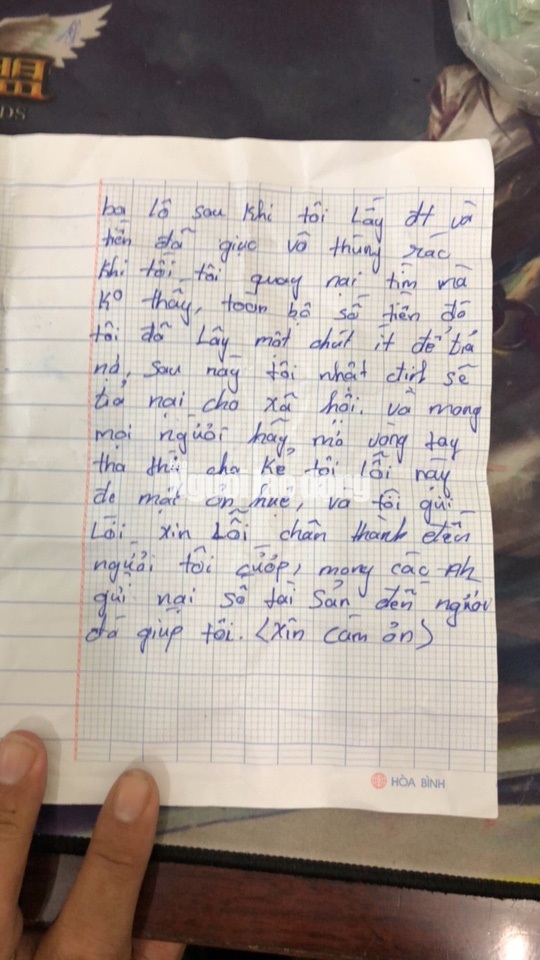 DS
ba lô sau khi tôi Lấy đt và
tiền đã giục vô thùng rác
khi tối tôi quay nai tìm mà
ko thấy, toàn bộ số tiền đó
tôi đã Lấy một chút ít để tiả
nợ, sau này tôi nhật định sẽ
tiả nai cho xã hội. và mong
mọi người hãy mở vòng tay
tha thứ cho kẻ tội lỗi này
de mát ơn huệ, và tôi gửi
Lời xin Lỗi chân thành đến
người tôi cướp, mong các Ah
gửi nai số tài Sản đến người
đó giúp tôi. (xin cảm ơn)
HÒA BÌNH